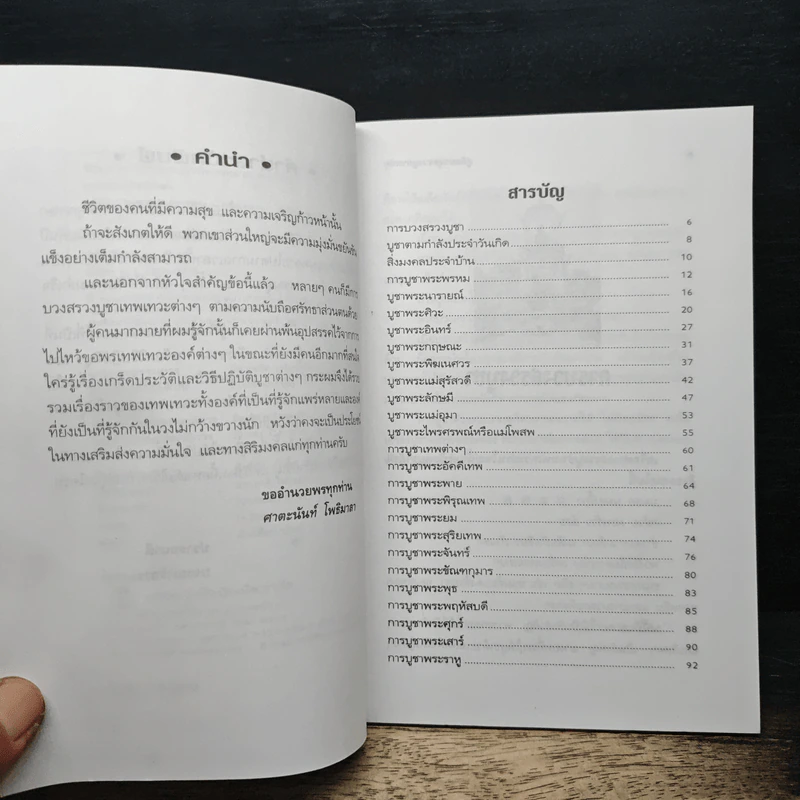 • คำนำ •
ชีวิตของคนที่มีความสุข และความเจริญก้าวหน้านั้น
ถ้าจะสังเกตให้ดี พวกเขาส่วนใหญ่จะมีความมุ่งมั่นขยันขัน
แข็งอย่างเต็มกำลังสามารถ
และนอกจากหัวใจสำคัญข้อนี้แล้ว หลายๆ คนก็มีการ
บวงสรวงบูชาเทพเทวะต่างๆ ตามความนับถือศรัทธาส่วนตนด้วย
ผู้คนมากมายที่ผมรู้จักนั้นก็เคยผ่านพ้นอุปสรรคไว้จากการ
ไปไหว้ขอพรเทพเทวะองค์ต่างๆ ในขณะที่ยังมีคนอีกมากที่
ใคร่รู้เรื่องเกร็ดประวัติและวิธีปฏิบัติบูชาต่างๆ กระผมจึงได้
รวมเรื่องราวของเทพเทวะทั้งองค์ที่เป็นที่รู้จักแพร่หลายและองค์
ที่ยังเป็นที่รู้จักกันในวงไม่กว้างขวางนัก หวังว่าคงจะเป็นประโยชน์
ในทางเสริมส่งความมั่นใจ และทางสิริมงคลแก่ทุกท่านครับ
ขออำนวยพรทุกท่าน
ศาตะนันท์ โพธิมาลา
สารบัญ
การบวงสรวงบูชา 6
บูชาตามกำลังประจำวันเกิด 8
สิ่งมงคลประจำบ้าน 10
การบูชาพระพรหม 12
บูชาพระนารายณ์ 16
บูชาพระศิวะ 20
บูชาพระอินทร์ 27
บูชาพระกฤษณะ 31
บูชาพระพิฆเนศวร 37
บูชาพระแม่สุรัสวดี 42
บูชาพระลักษมี 47
บูชาพระแม่อุมา 53
บูชาพระไพรศรพณ์หรือแม่โพสพ 55
การบูชาเทพต่างๆ 60
การบูชาพระอัคคีเทพ 61
การบูชาพระพาย 64
การบูชาพระพิรุณเทพ 68
การบูชาพระยม 71
การบูชาพระสุริยเทพ 74
การบูชาพระจันทร์ 76
การบูชาพระขัณฑกุมาร 80
การบูชาพระพุธ 83
การบูชาพระพฤหัสบดี 85
การบูชาพระศุกร์ 88
การบูชาพระเสาร์ 90
การบูชาพระราหู 92